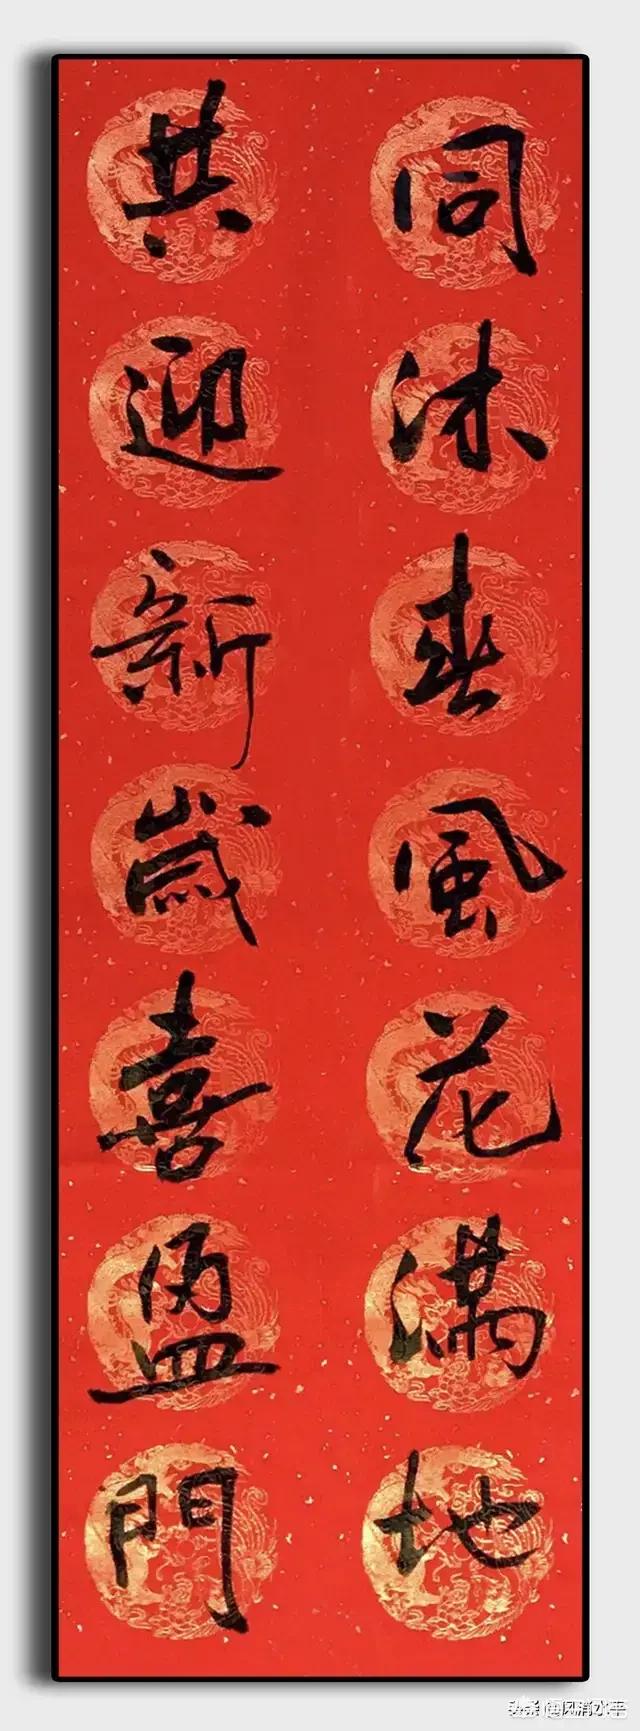 同沐春風花滿地
共迎新歲喜盈門